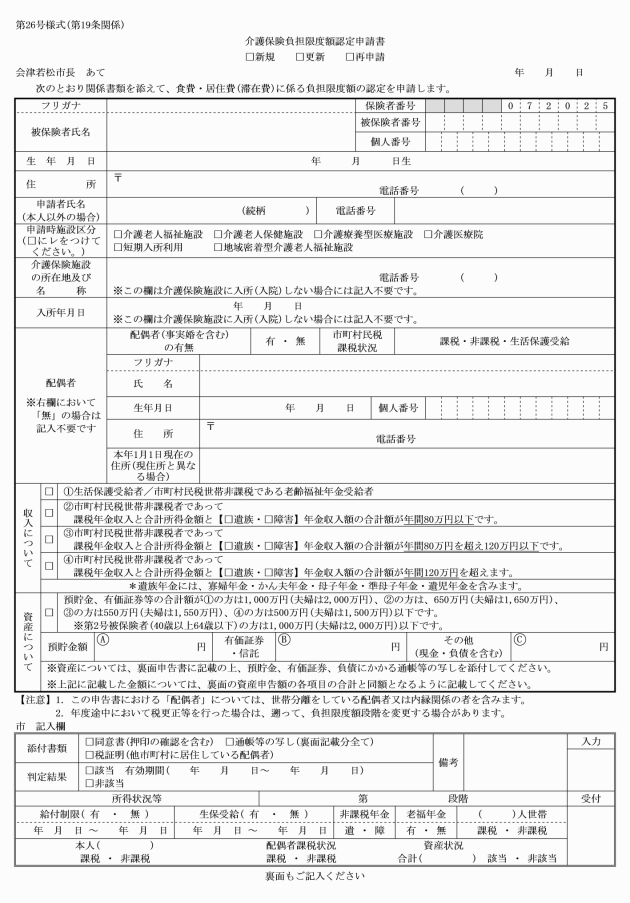 第26号様式(第19条関係)
介護保険負担限度額認定申請書
□新規　□更新　□再申請
会津若松市長　あて
年　月　日
次のとおり関係書類を添えて、食費・居住費(滞在費)に係る負担限度額の認定を申請します。
フリガナ
保険者番号　0 7 2 0 2 5
被保険者氏名
被保険者番号
個人番号
生　年　月　日　　年　　月　　日生
住　　所
〒
電話番号　(　　)
申請者氏名
(本人以外の場合)
(続柄　　)　電話番号
申請時施設区分
(□にレをつけて
ください。)
□介護老人福祉施設　□介護老人保健施設　□介護療養型医療施設　□介護医療院
□短期入所利用　□地域密着型介護老人福祉施設
介護保険施設
の所在地及び
名　　称
電話番号　(　　)
※この欄は介護保険施設に入所(入院)しない場合には記入不要です。
入所年月日
年　月　日
※この欄は介護保険施設に入所(入院)しない場合には記入不要です。
配偶者
※右欄において
「無」の場合は
記入不要です
配偶者(事実婚を含む)
の有無
有　・　無
市町村民税
課税状況
課税・非課税・生活保護受給
フリガナ
氏　　名
生年月日　　年　　月　　日　個人番号
住　　所
〒
電話番号
本年1月1日現在の
住所(現住所と異な
る場合)
収入について
□　①生活保護受給者／市町村民税世帯非課税である老齢福祉年金受給者
□　②市町村民税世帯非課税者であって
課税年金収入と合計所得金額と【□遺族・□障害】年金収入額の合計額が年間80万円以下です。
□　③市町村民税世帯非課税者であって
課税年金収入と合計所得金額と【□遺族・□障害】年金収入額の合計額が年間80万円を超え120万円以下です。
□　④市町村民税世帯非課税者であって
課税年金収入と合計所得金額と【□遺族・□障害】年金収入額の合計額が年間120万円を超えます。
＊遺族年金には、寡婦年金・かん夫年金・母子年金・準母子年金・遺児年金を含みます。
資産について
□　預貯金、有価証券等の合計額が①の方は1,000万円(夫婦は2,000万円)、②の方は、650万円(夫婦は1,650万円)、
③の方は550万円(夫婦は1,550万円)、④の方は500万円(夫婦は1,500万円)以下です。
※第2号被保険者(40歳以上64歳以下)の方は1,000万円(夫婦は2,000万円)以下です。
預貯金額　Ⓐ　円
有価証券
・信託
Ⓑ　円
その他
(現金・負債を含む)
Ⓒ　円
※資産については、裏面申告書に記載の上、預貯金、有価証券、負債にかかる通帳等の写しを添付してください。
※上記に記載した金額については、裏面の資産申告額の各項目の合計と同額となるように記載してください。
【注意】1. この申告書における「配偶者」については、世帯分離をしている配偶者又は内縁関係の者を含みます。
2. 年度途中において税更正等を行った場合は、遡って、負担限度額段階を変更する場合があります。
市　記入欄
添付書類
□同意書(押印の確認を含む)　□通帳等の写し(裏面記載分全て)
□税証明(他市町村に居住している配偶者)
備考
入力
判定結果
□該当　有効期間(　年　月　日～　年　月　日)
□非該当
所得状況等　　第　　段階　　受付
給付制限(　有　・　無　)　生保受給(　有　・　無　)　非課税年金　老福年金　(　　)人世帯
年　月　日　～　年　月　日　　年　月　日　～　年　月　日　遺　・　障　有　・　無　課税　・　非課税
本人(　　)　配偶者課税状況　資産状況
課税　・　非課税　　課税　・　非課税　　合計(　　)　該当　・　非該当
裏面もご記入ください